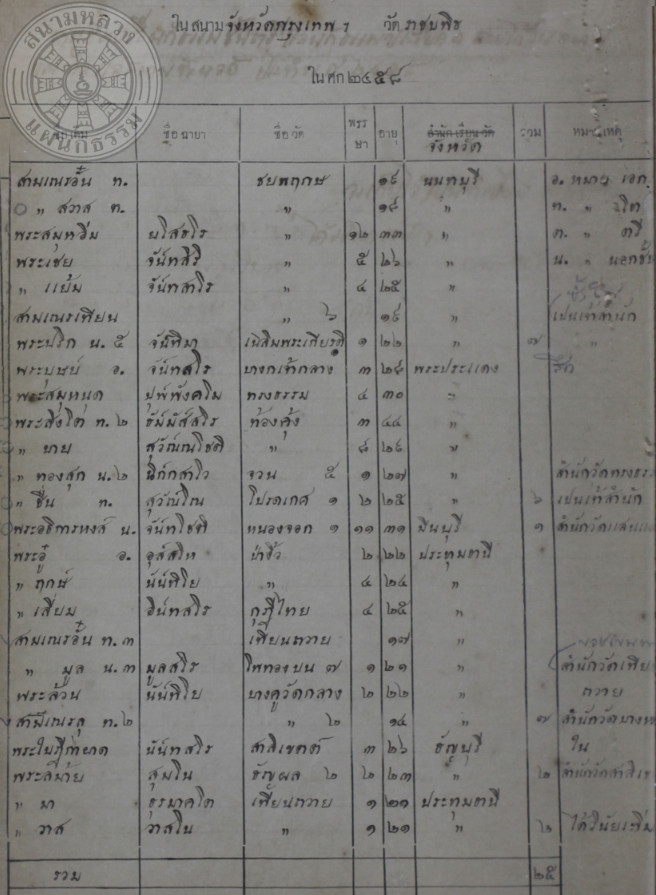 สนามหลวง
แผนกธรรม
ในสนามจังหวัดกรุงเทพฯ วัดราชบพิธ
ในศก ๒๔๕๘
ชื่อเดิม ชื่อฉายา ชื่อวัด พรรษา อายุ สำนักเรียน วัด จังหวัด รวม หมายเหตุ
สามเณรอั๋น ท. ชยพฤกษ ๑๙ นนทบุรี อ. หมาย เอก
" สวาส ต. " ๑๘ " ท. " โท
พระสมุหวิม ยโสธโร " ๑๒ ๓๓ " ต. " ตรี
พระเชย จันทสิริ " ๕ ๒๖ " น. "
" แย้ม จันทสาโร " ๔ ๒๕ "
สามเณรเทียน " ๖ ๑๙ " เป็นเจ้าสำนัก
พระปริก น. ๕ จันทิมา เฉลิมพระเกียรติ ๑ ๒๒ " ๗ "
พระบุษย์ อ. จันทสโร บางกเจ้ากลาง ๓ ๒๘ พระประแดง สึก
พระสมุหนด ปุพพังคโม ทรงธรรม ๔ ๓๐ "
พระสิงโต ท. ๒ ธัมมัสสโร ท้องคุ้ง ๓ ๔๔ "
" บาย สุวัณณโชติ " ๘ ๒๙ "
" ทองสุก น. ๒ จวน ๕ ๑ ๒๗ " สำนักวัดทรงธรร
" ชื่น ท. สุวัณโณ โปรดเกศ ๑ ๒ ๒๕ " ๖ เป็นเจ้าสำนัก
พระอธิการหงส์ น. จันทโชติ หนองจอก ๑ ๑๑ ๓๑ มีนบุรี ๑ สำนักวัดแสนแ
พระอู๋ อ. อุสสโห ป่างิ้ว ๒ ๒๒ ประทุมธานี
" ฤกษ์ นันทิโย " ๔ ๒๔ "
" เสี่ยม อินทสโร กุฎีไทย ๔ ๒๕ "
สามเณรอั๋น ท. ๓ เทียนถวาย ๑๗ "
" มูล น. ๓ มูลสโร โพทองบน ๗ ๑ ๒๑ " สำนักวัดเทียน
พระล้วน นันทิโย บางคูวัดกลาง ๒ ๒๒ " ถวาย
สามเณรลุ ท. ๒ " ๒ ๑๔ " ๗ สำนักวัดบางห
นันทสโร สาลิเขตต์ ๓ ๒๖ ธัญบุรี ใน
สุมโน ธัญผล ๒ ๒ ๒๓ " ๒ สำนักวัดสาลิเข
" มา ธุรมาคโต เทียนถวาย ๑ ๒๑ ประทุมธานี
" วาส วาสโน " ๑ ๒๑ " ๒ ได้วินัยเพิ่ม
รวม ๒๕